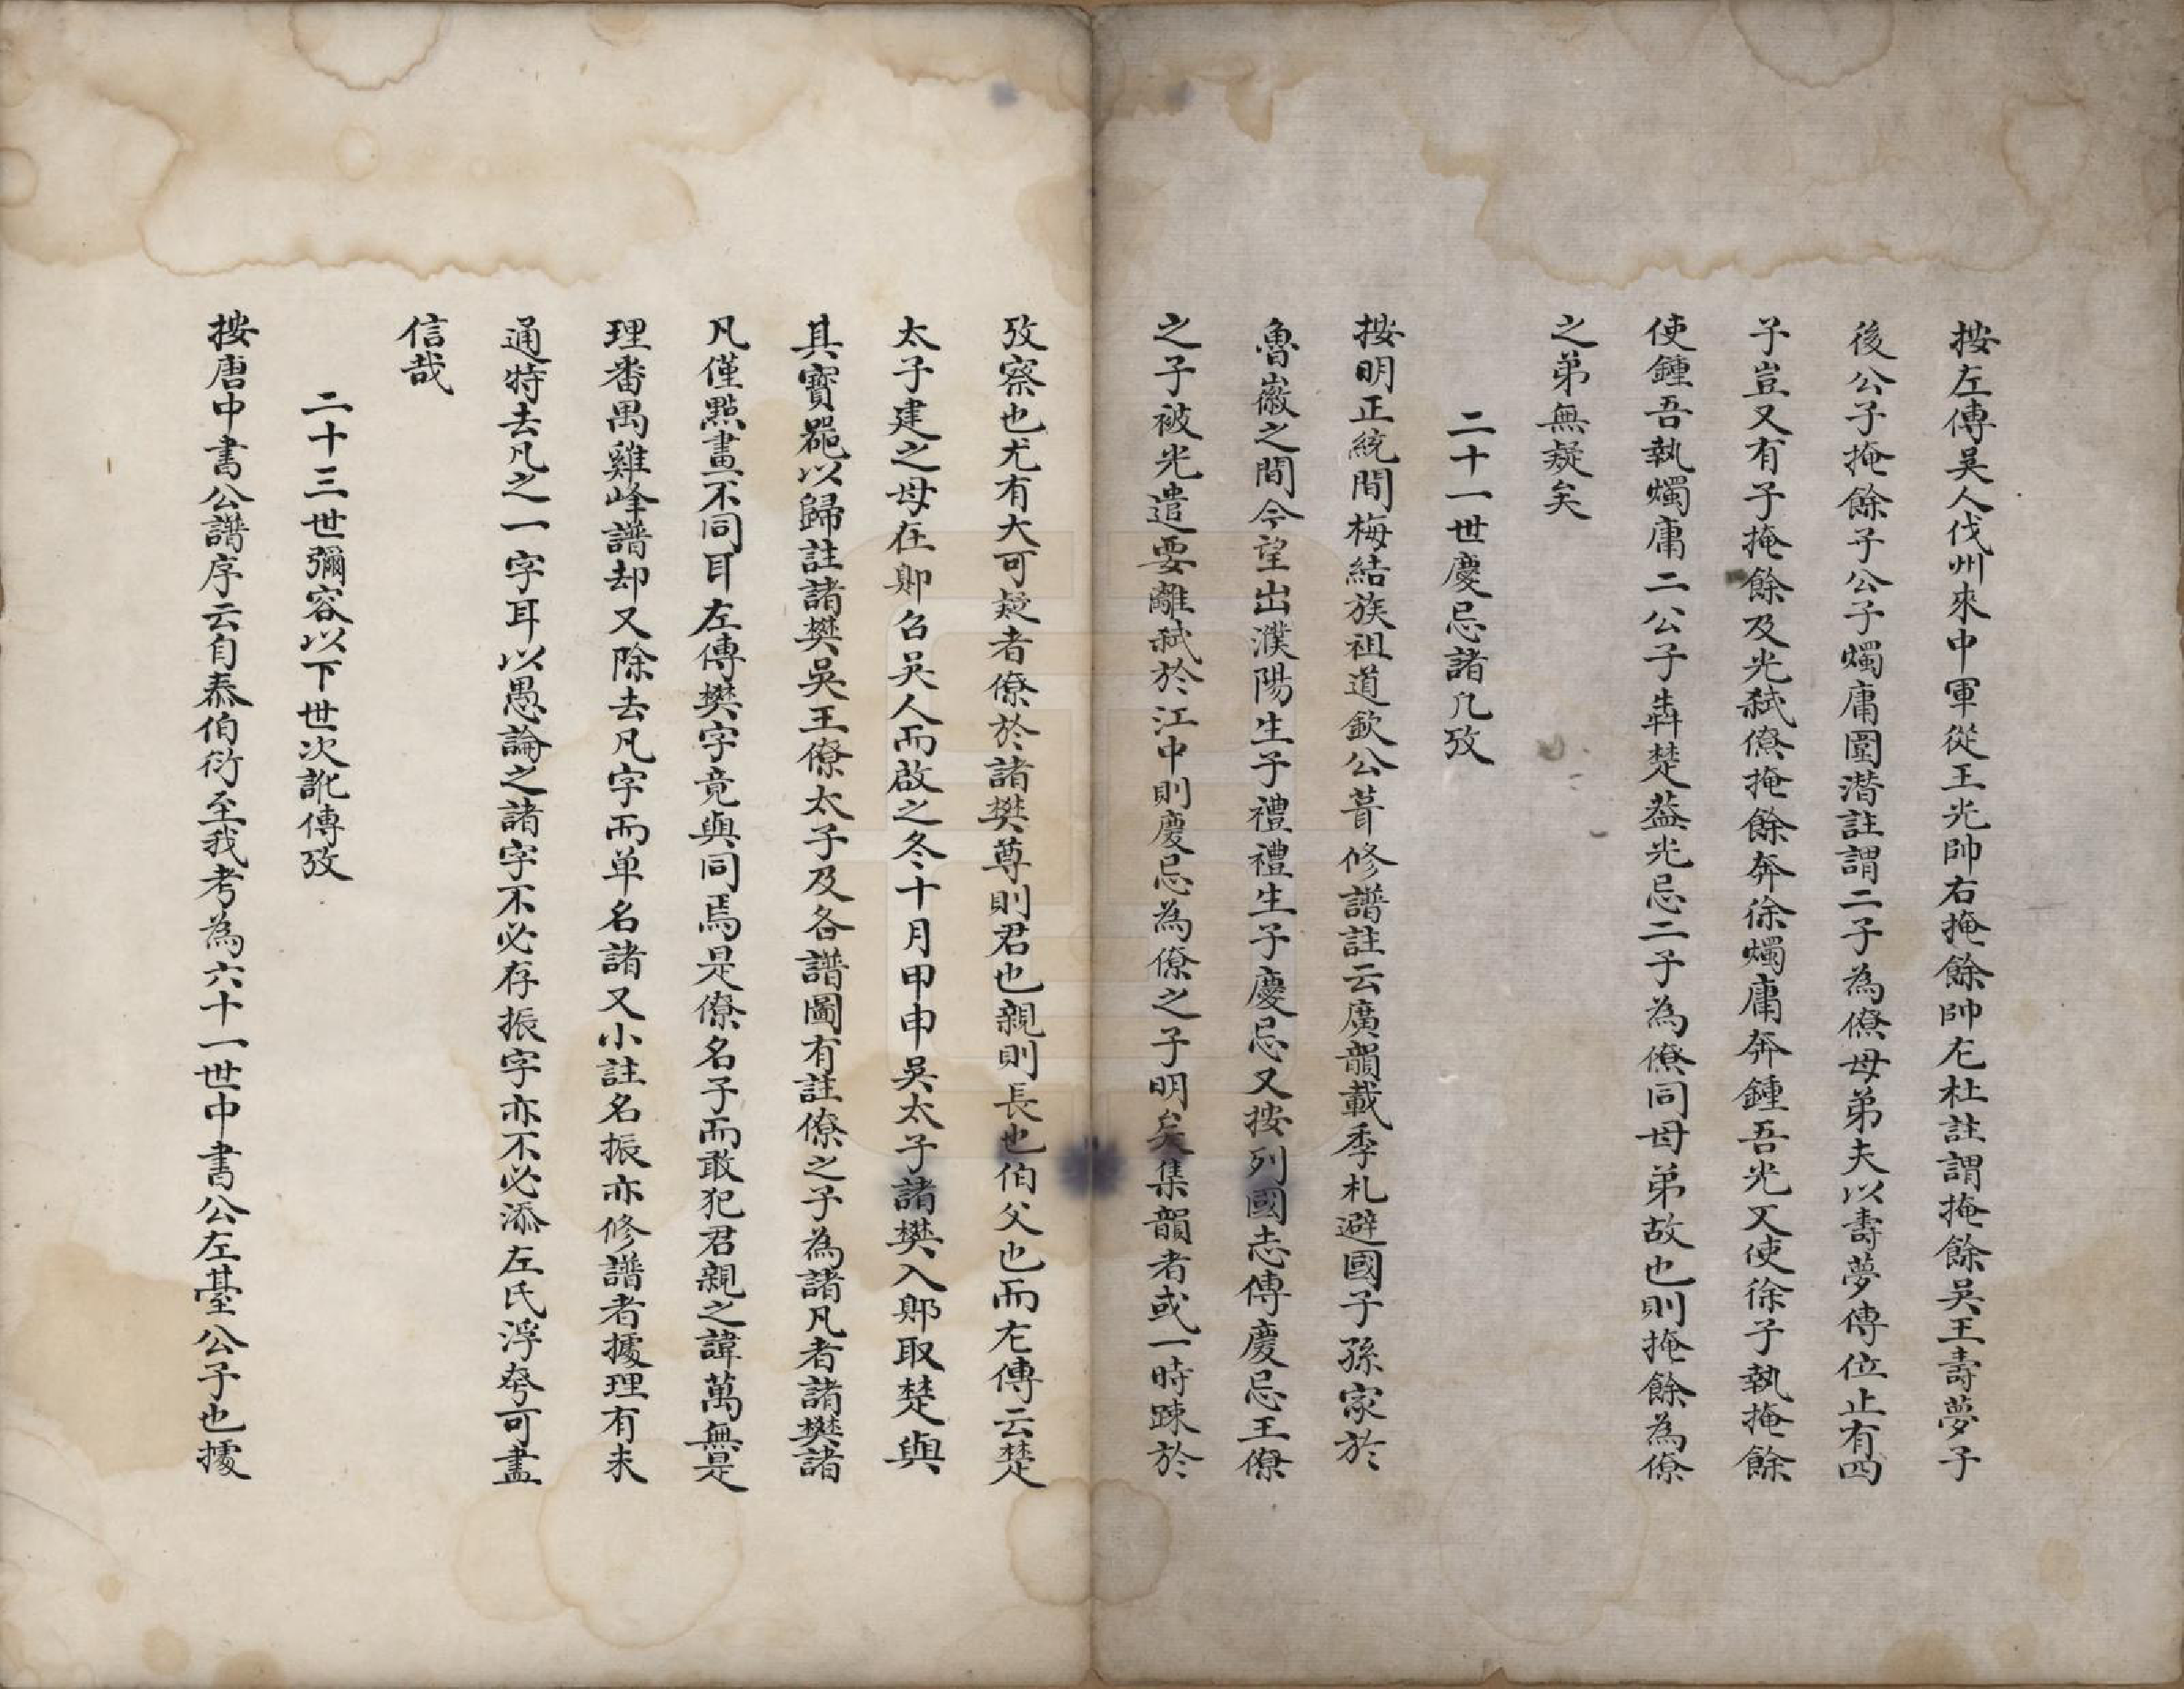 按左傳吳人伐州來中軍從王光帥右掩餘帥左杜註謂掩餘吳王壽夢子
後公子掩餘子公子燭庸圍潛註謂二子為僚母弟夫以壽夢傳位止有四
子豈又有子掩餘及光弒僚掩餘奔徐燭庸奔鍾吾光又使徐子執掩餘
使鍾吾執燭庸二公子犇楚葢光忌二子為僚同母弟故也則掩餘為僚
之弟無疑矣
二十一世慶忌諸凡攷
按明正統間梅結族祖道欽公葺修譜註云廣韻載季札避國子孫家於
魯嶶之間今望出濮陽生子禮禮生子慶忌又按列國志傳慶忌王僚
之子被光遣要離弒於江中則慶忌為僚之子明矣集韻者或一時踈於
攷察也尤有大可疑者僚於諸樊尊則君也親則長也伯父也而左傳云楚
太子建之母在郹召吳人而啟之冬十月甲申吳太子諸樊入郹取楚與
其寶器以歸註諸樊吳王僚太子及各譜圖有註僚之子為諸凡者諸樊諸
凡僅點畫不同耳左傳樊字竟與同焉是僚名子而敢犯君親之諱萬無是
理番禺雞峰譜却又除去凡字而单名諸又小註名振亦修譜者據理有未
通特去凡之一字耳以愚論之諸字不必存振字亦不必添左氏浮夸可盡
信哉
二十三世彌容以下世次訛傳攷
按唐中書公譜序云自泰伯衍至我考為六十一世中書公左臺公子也據